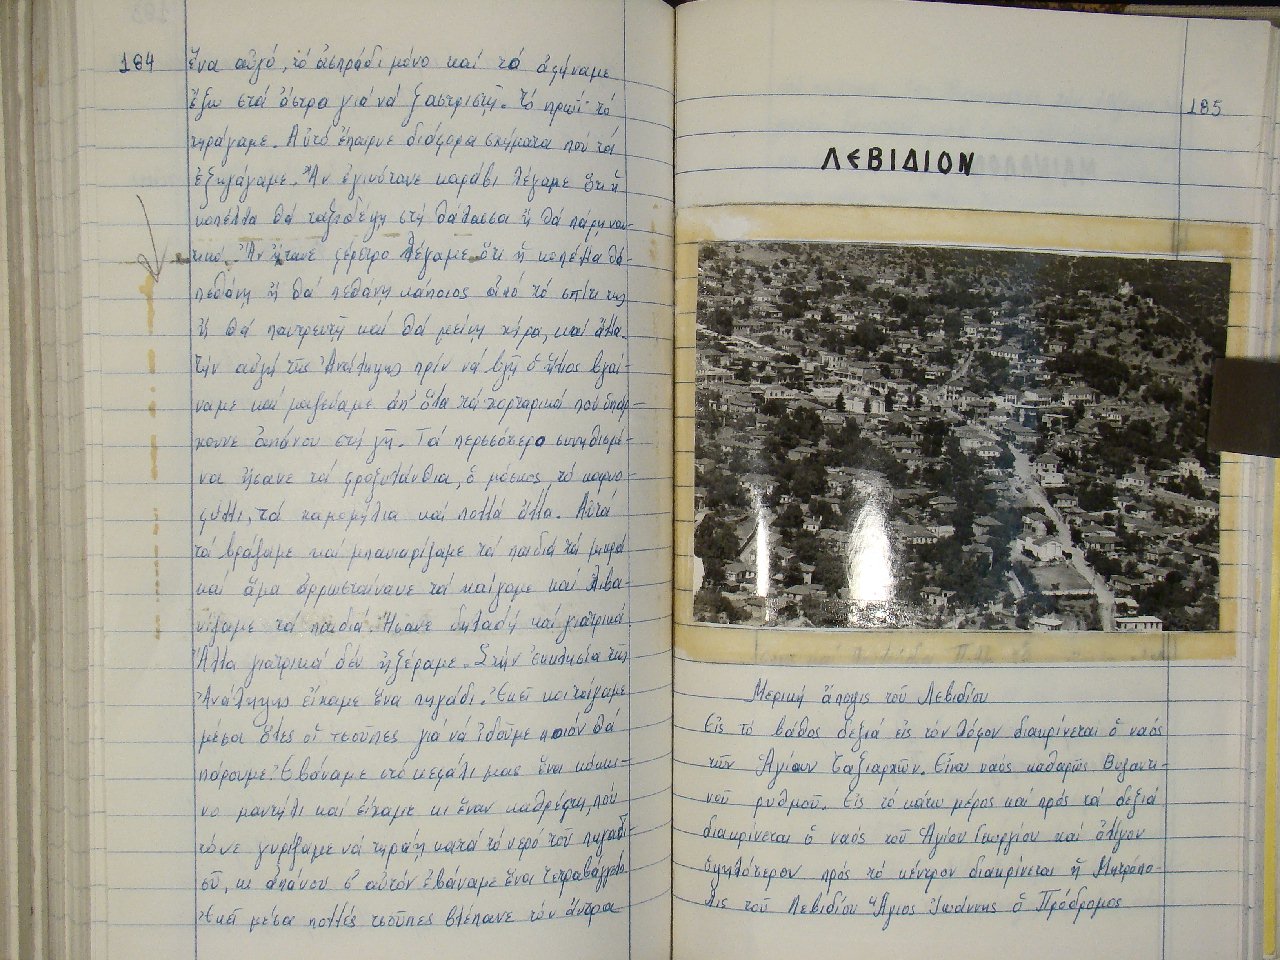 184
ἕνα αὐγό, τό ἀσπράδι μόνο καί τό ἀφήναμε
ἔξω στά ἄστρα γιά νά ξαστριστῆ. Τό πρωΐ τό
τηράγαμε. Αὐτό ἔπαιρνε διάφορα σχήματα πού τά
ἐξηγάγαμε. Ἄν ἐγινότανε καράβι λέγαμε ὅτι ἡ
κοπέλλα θά ταξιδέψη στή θάλασσα ἤ θά πάρη ναυ-
τικό. Ἄν ἤτανε φέρετρο λέγαμε ὅτι ἡ κοπέλλα θά
πεθάνη ἤ θά πεθάνη κάποιος ἀπό τό σπίτι της
ἤ θά παντρευτῆ καί θά μείνη χήρα, καί ἄλλα.
τήν αὐγή τῆς Ἀναλήψης πρίν νά βγῆ ὁ ἥλιος βγαί-
ναμε καί μαζεύαμε ἀπ' ὅλα τά χορταρικά πού ὑπάρ-
χουνε ἀπάνου στή γῆ. Τά περσότερο συνηθισμέ-
να ἤσανε τά φροξυλάνθια, ὁ μόσκος, τό καρυο-
φύλλι, τά χαμομήλια καί πολλά ἄλλα. Αὐτά
τά βράζαμε καί μπανιαρίζαμε τά παιδιά τά μικρά
καί ἅμα ἀρρωσταίνανε τά καίγαμε καί λιβα-
νίζαμε τά παιδιά. Ἤσανε δηλαδή καί γιατρικά
Ἄλλα γιατρικά δέν ἠξέραμε. Στήν ἐκκλησία της
Ἀνάληψης εἴχαμε ἕνα πηγάδι. Ἐκεῖ κοιτάγαμε
μέσα ὅλες οἱ τσοῦπες γιά νά ἰδοῦμε ποιόν θά
πάρουμε. Ἐβάναμε στό κεφάλι μας ἕνα κόκκι-
νο μαντήλι καί εἴχαμε κι ἕναν καθρέφτη, πού
τόνε γυρίζαμε νά τηράη κατά τό νερό τοῦ πηγαδι-
οῦ, κι ἀπάνου σ' αὐτόν ἐβάναμε ἕνα τετραβάγγελο
Ἐκεῖ μέσα πολλές τσοῦπες βλέπανε τόν ἄντρα
185
ΛΕΒΙΔΙΟΝ
Μερική ἄποψις τοῦ Λεβιδίου
Εἰς τό βάθος δεξιά εἰς τόν λόφον διακρίνεται ὁ ναός
τῶν Ἁγίων Ταξιαρχῶν. Εἶναι ναός καθαρῶς Βυζαντι-
νοῦ ρυθμοῦ. Εἰς τό κάτω μέρος καί πρός τά δεξιά
διακρίνεται ὁ ναός τοῦ Ἁγίου Γεωργίου καί ὀλίγον
ὑψηλότερον πρός τό κέντρον διακρίνεται ἡ Μητρόπο-
λις τοῦ Λεβιδίου Ἅγιος Ἰωάννης ὁ Πρόδρομος